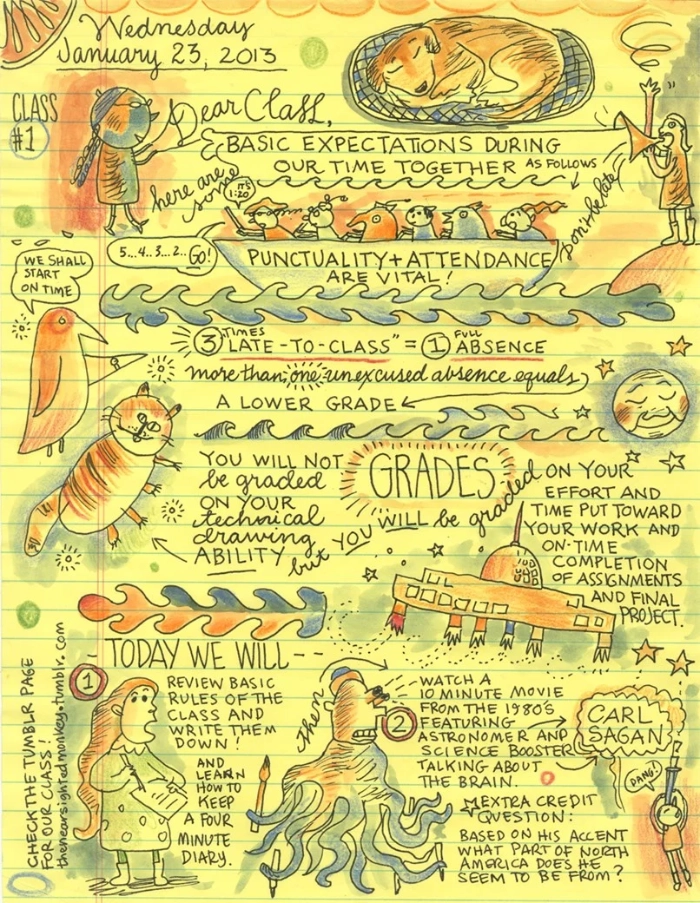 Wednesday
January 23, 2013
CLASS
#1
Dear Class,
here are
some
BASIC EXPECTATIONS DURING
OUR TIME TOGETHER AS FOLLOWS
Don't be late
IT'S
1:20
5...4..3..2.. GO!
PUNCTUALITY + ATTENDANCE
ARE VITAL!
WE SHALL
START
ON TIME
③ TIMES "LATE-TO-CLASS" = ① FULL ABSENCE
more than one unexcused absence equals
A LOWER GRADE
GRADES
YOU WILL NOT
be graded
ON YOUR
technical
drawing
ABILITY
but YOU WILL be graded ON YOUR
EFFORT AND
TIME PUT TOWARD
YOUR WORK AND
ON-TIME
COMPLETION
OF ASSIGNMENTS
AND FINAL
PROJECT.
TODAY WE WILL
①
REVIEW BASIC
RULES OF THE
CLASS AND
WRITE THEM
DOWN!
AND
LEARN
HOW TO
KEEP
A FOUR
MINUTE
DIARY.
then
②
WATCH A
10 MINUTE MOVIE
FROM THE 1980'S
FEATURING
ASTRONOMER AND
SCIENCE BOOSTER
TALKING ABOUT
THE BRAIN.
CARL
SAGAN
DANG!
EXTRA CREDIT
QUESTION:
BASED ON HIS ACCENT
WHAT PART OF NORTH
AMERICA DOES HE
SEEM TO BE FROM?
CHECK THE TUMBLR PAGE
FOR OUR CLASS!
thenearsightedmonkey.tumblr.com